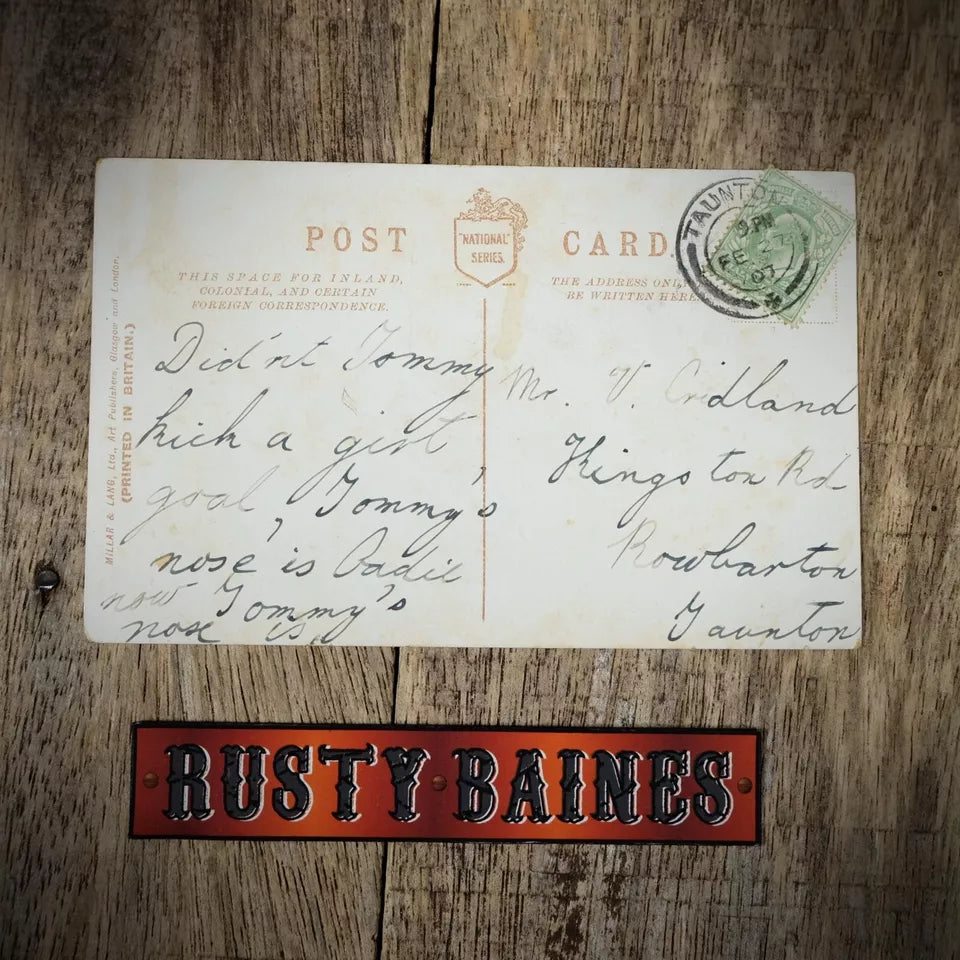 POST CARD.
"NATIONAL"
SERIES.
THIS SPACE FOR INLAND,
COLONIAL, AND CERTAIN
FOREIGN CORRESPONDENCE.
THE ADDRESS ONLY
BE WRITTEN HERE.
TAUNTON
PM
FE 27
07
MILLAR & LANG, Ltd., Art Publishers, Glasgow and London.
(PRINTED IN BRITAIN.)
Did'nt Tommy
kick a girt
goal, Tommy's
nose is
now Tommy's
nose is.
Mr. V. Cridland
Kingston Rd
Rowbarton
Taunton
RUSTY BAINES